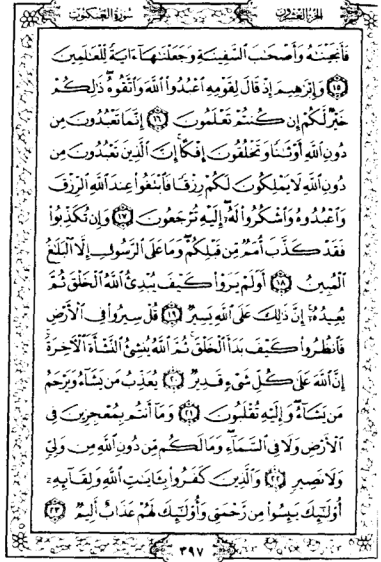 الجزء العشرون
سورة العنكبوت
فَأَنجَيْنَٰهُ وَأَصْحَٰبَ ٱلسَّفِينَةِ وَجَعَلْنَٰهَآ ءَايَةً لِّلْعَٰلَمِينَ
﴿١٥﴾ وَإِبْرَٰهِيمَ إِذْ قَالَ لِقَوْمِهِ ٱعْبُدُوا۟ ٱللَّهَ وَٱتَّقُوهُ ذَٰلِكُمْ
خَيْرٌ لَّكُمْ إِن كُنتُمْ تَعْلَمُونَ ﴿١٦﴾ إِنَّمَا تَعْبُدُونَ مِن
دُونِ ٱللَّهِ أَوْثَٰنًا وَتَخْلُقُونَ إِفْكًا إِنَّ ٱلَّذِينَ تَعْبُدُونَ مِن
دُونِ ٱللَّهِ لَا يَمْلِكُونَ لَكُمْ رِزْقًا فَٱبْتَغُوا۟ عِندَ ٱللَّهِ ٱلرِّزْقَ
وَٱعْبُدُوهُ وَٱشْكُرُوا۟ لَهُۥٓ إِلَيْهِ تُرْجَعُونَ ﴿١٧﴾ وَإِن تُكَذِّبُوا۟
فَقَدْ كَذَّبَ أُمَمٌ مِّن قَبْلِكُمْ وَمَا عَلَى ٱلرَّسُولِ إِلَّا ٱلْبَلَٰغُ
ٱلْمُبِينُ ﴿١٨﴾ أَوَلَمْ يَرَوْا۟ كَيْفَ يُبْدِئُ ٱللَّهُ ٱلْخَلْقَ ثُمَّ
يُعِيدُهُۥٓ إِنَّ ذَٰلِكَ عَلَى ٱللَّهِ يَسِيرٌ ﴿١٩﴾ قُلْ سِيرُوا۟ فِى ٱلْأَرْضِ
فَٱنظُرُوا۟ كَيْفَ بَدَأَ ٱلْخَلْقَ ثُمَّ ٱللَّهُ يُنشِئُ ٱلنَّشْأَةَ ٱلْءَاخِرَةَ
إِنَّ ٱللَّهَ عَلَىٰ كُلِّ شَىْءٍ قَدِيرٌ ﴿٢٠﴾ يُعَذِّبُ مَن يَشَآءُ وَيَرْحَمُ
مَن يَشَآءُ وَإِلَيْهِ تُقْلَبُونَ ﴿٢١﴾ وَمَآ أَنتُم بِمُعْجِزِينَ فِى
ٱلْأَرْضِ وَلَا فِى ٱلسَّمَآءِ وَمَا لَكُم مِّن دُونِ ٱللَّهِ مِن وَلِىٍّ
وَلَا نَصِيرٍ ﴿٢٢﴾ وَٱلَّذِينَ كَفَرُوا۟ بِـَٔايَٰتِ ٱللَّهِ وَلِقَآئِهِۦٓ
أُو۟لَٰٓئِكَ يَئِسُوا۟ مِن رَّحْمَتِى وَأُو۟لَٰٓئِكَ لَهُمْ عَذَابٌ أَلِيمٌ ﴿٢٣﴾
٣٩٧